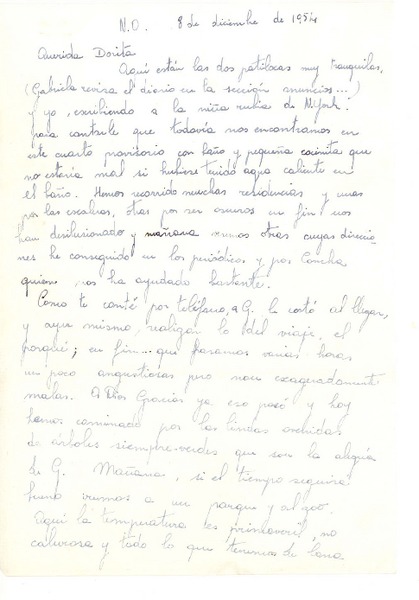 N.O. 8 de diciembre de 1954
Querida Dorita
Aquí están las dos patilocas muy tranquilas,
(Gabriela revisa el diario en la sección anuncios...)
y yo, escribiendo a la niña rubia de N.York:
para contarle que todavía nos encontramos en
este cuarto provisorio con baño y pequeña cocinita que
no estaría mal si hubiese tenido agua caliente en
el baño. Hemos recorrido muchas residencias y unas
por las escaleras, otras por ser oscuras en fin! nos
han desilusionado y mañana veremos otras cuyas direccio-
nes he conseguido en los periódicos y por Concha
quien nos ha ayudado bastante.
Como te conté por teléfono, a G. le costó al llegar,
y aun mismo, realizar lo del viaje, el
porqué; en fin... que pasamos varias horas
un poco angustiosas pero no exageradamente
malas. A Dios Gracias ya eso pasó y hoy
hemos caminado por las lindas avenidas
de árboles siempre-verdes que son la alegría
de G. Mañana, si el tiempo seguirá
bueno iremos a un parque y al zoo.
Aquí la temperatura es primaveril, no
calurosa y todo lo que tenemos de lana